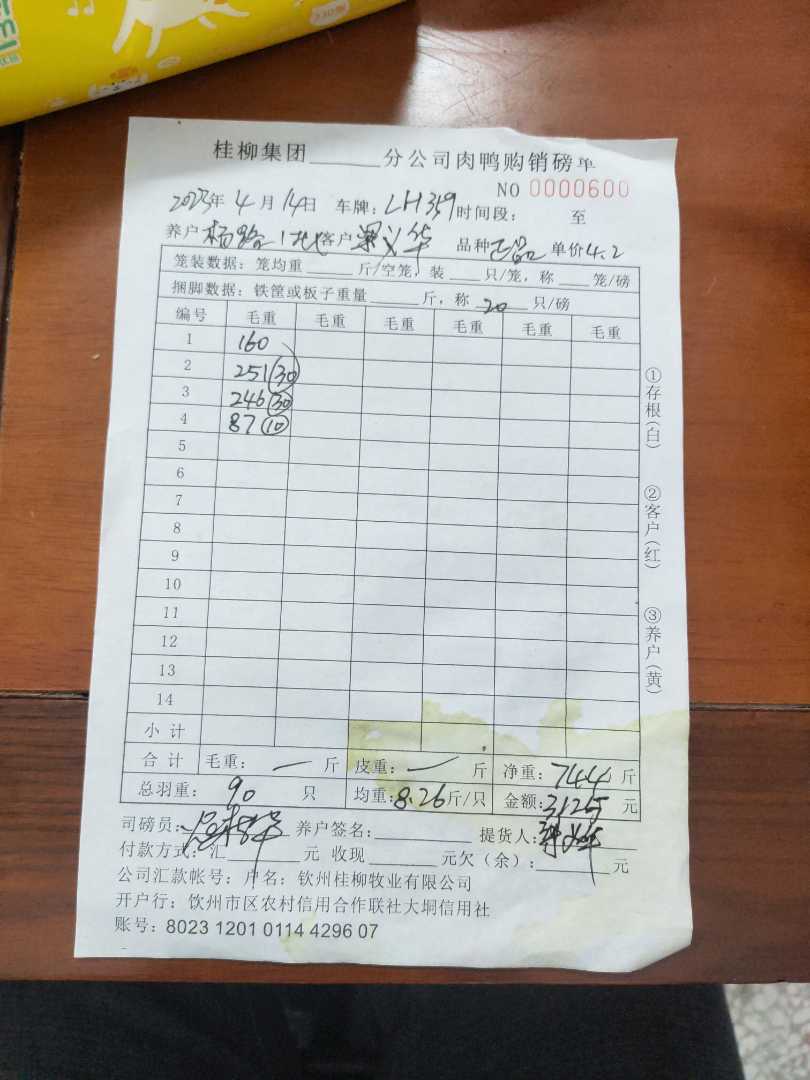 桂柳集团______分公司肉鸭购销磅单
NO 0000600
2023年 4月 14日 车牌: LH359 时间段: 至
养户 杨 客户 梁义华 品种 正品 单价 4.2
笼装数据: 笼均重______斤/空笼, 装___只/笼, 称___笼/磅
捆脚数据: 铁筐或板子重量______斤, 称 20 只/磅
编号 毛重 毛重 毛重 毛重 毛重 毛重
1 160
2 251 (30)
3 246 (30)
4 87 (10)
5
6
7
8
9
10
11
12
13
14
小计
合计 毛重: — 斤 皮重: — 斤 净重: 744 斤
总羽重: 90 只 均重: 8.26 斤/只 金额: 3125 元
司磅员: 养户签名: 提货人: 梁义华
付款方式: 汇______元 收现______元欠(余):______元
公司汇款帐号: 户名: 钦州桂柳牧业有限公司
开户行: 饮州市区农村信用合作联社大垌信用社
账号: 8023 1201 0114 4296 07
①存根(白)
②客户(红)
③养户(黄)